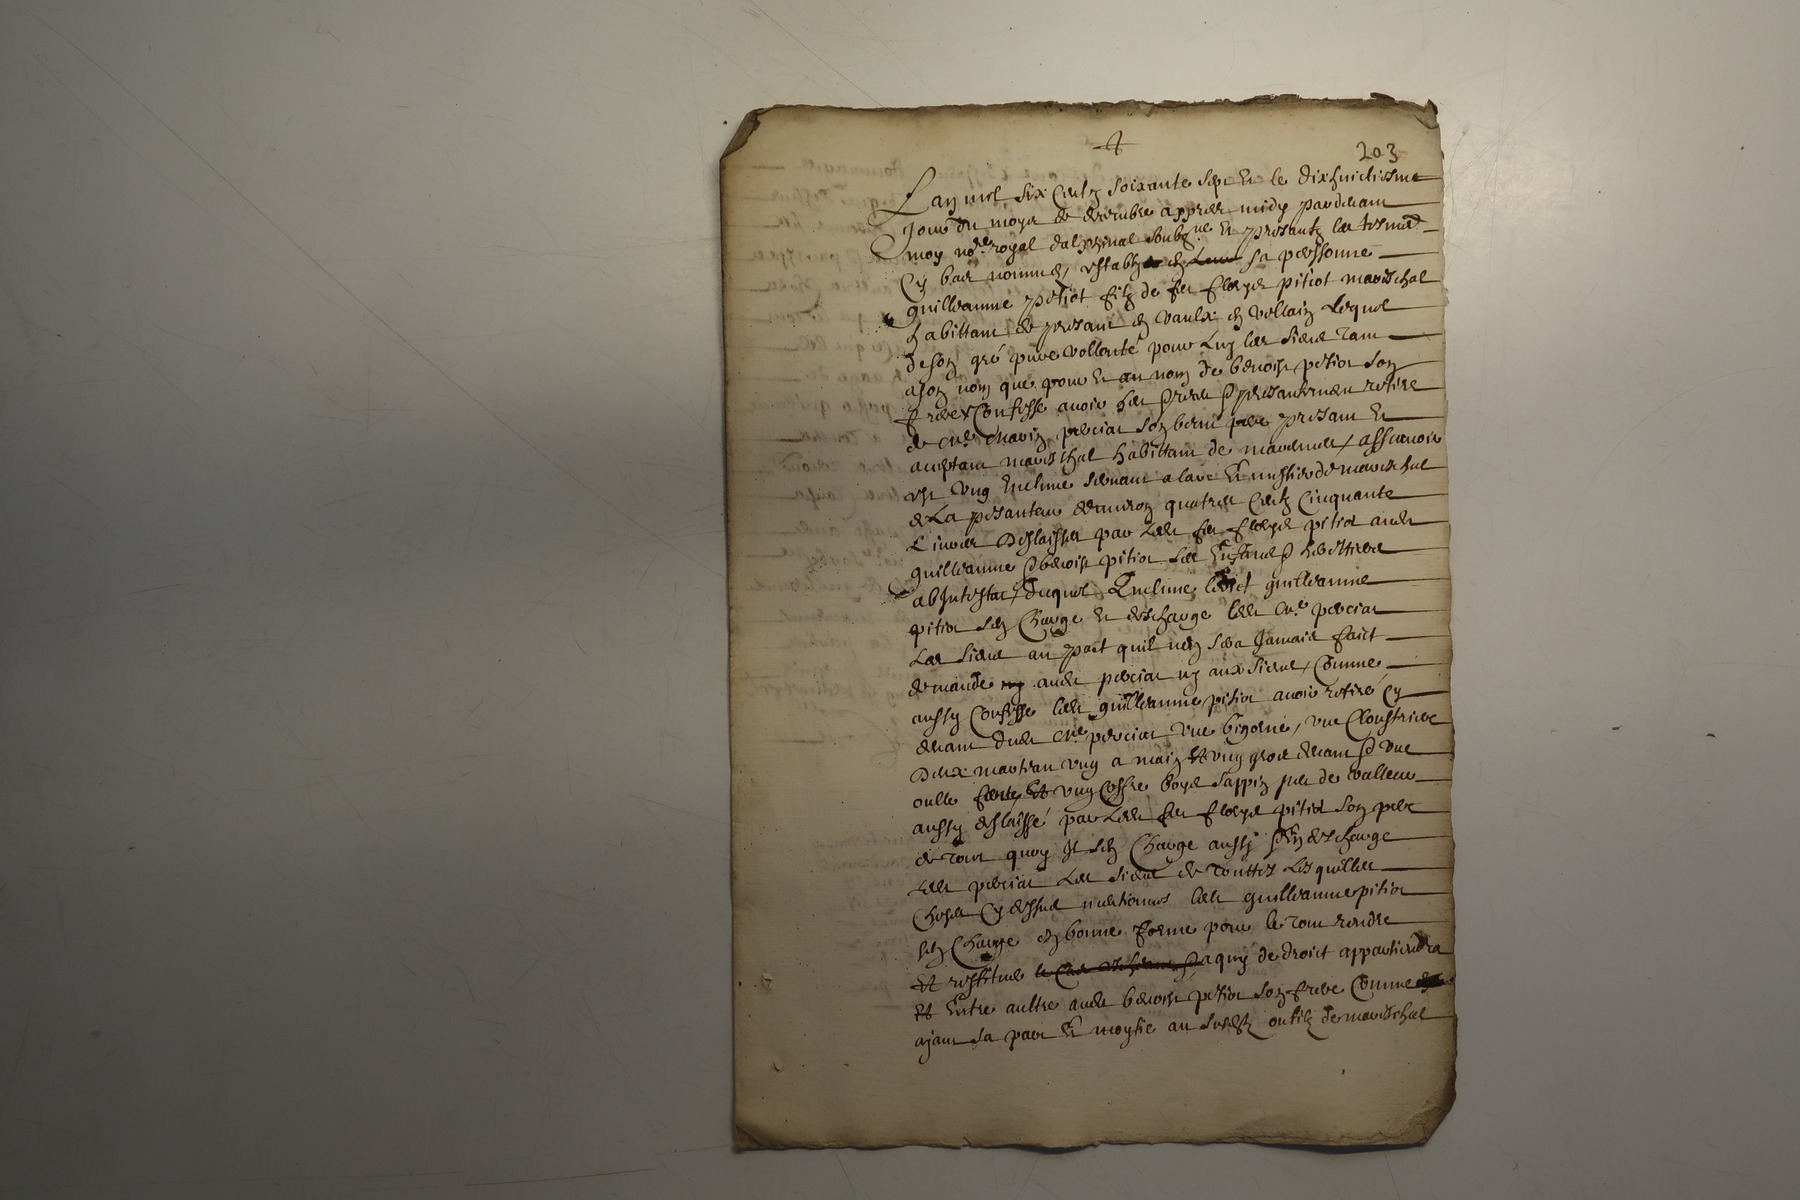 203
Lan mil six centz soixante sept et le dixhuictiesme
Jour du moys de decembre appres midy pardevant
moy no.re royal dalphinal soubz.né et presantz les tesmoingz
Cy bas nommes, estably en sa personne
guilleaume pitiot filz de feu fleurys pitiot mareschal
habittant de presant en vaulx en vellain lequel
de son gré pure vollonté pour luy les siens tant
a son nom que pour et au nom de benoist pitiot son
frere Confesse avoir heu presantement retiré
de presant et
acceptant mareschal habittant de assavoir
est ung enclume servant a lart et mestier de mareschal
de La pesanteur denviron quatre centz Cinquante
Livres deslaissee par ledit feu fleurys pitiot audit
guilleaume benoist pitiot ses enfans heritiers
abintestat, duquel Enclume ledict guilleaume
pitiot sen Charge et descharge ledit
Les siens au pact quil nen sera Jamais faict
demande audit ny aux siens, Comme
aussy Confesse ledit guilleaume pitiot avoir retiré cy
devant dudit une bigorne, une
Deux marteau ung a main et ung gros devant une
oulle et ung Coffre boys sappin de valleur
aussy deslaissé par ledit feu fleurys pitiot son pere
de tout quoy Il sen Charge aussy descharge
ledit Les siens de touttes Lesquelles
Choses Cy dessus mentionnes ledit guilleaume pitiot
sen Charge en bonne forme pour le tout rendre
et restitue a quy de droict appartiendra
et Entre aultre audit benoist pitiot son frere Comme
ayant sa part et moytie au outilz de mareschal